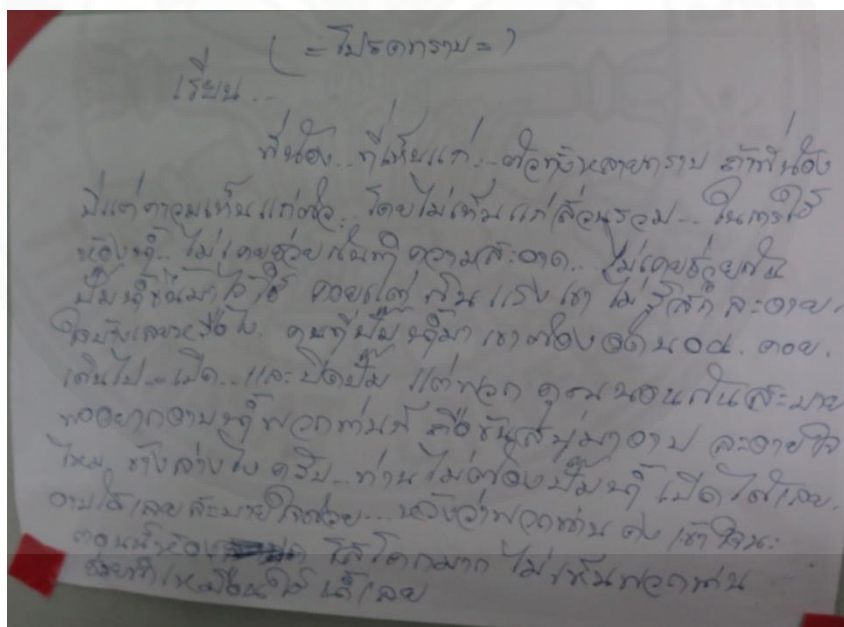 (= โปรดทราบ =)
เรียน...
พี่น้อง...ที่เห็นแก่...ตัวทั้งหลายทราบ ถ้าพี่น้อง
มีแต่ความเห็นแก่ตัว... โดยไม่เห็นแก่ส่วนรวม... ในการใช้
ห้องน้ำ... ไม่เคยช่วยกันทำความสะอาด... ไม่เคยช่วยกัน
ปั๊มน้ำขึ้นมาไว้ใช้ คอยแต่ กินแรงเขา ไม่รู้สึก ละอาย.
ใจบ้างเลยหรือไง. คนที่ปั๊มน้ำมา เขาต้องอดนอน. คอย.
เดินไป...เปิด...และปิดปั๊ม แต่พวกคุณนอนกันสบาย
พออยากอาบน้ำพวกท่านก็ ถือขันสบู่มาอาบ ละอายใจ
ไหม. ข้างล่างไง ครับ...ท่านไม่ต้องปั๊มน้ำ เปิดได้เลย.
อาบได้เลยสบายใจด้วย.... หวังว่าพวกท่าน คง เข้าใจนะ
ตอนนี้ห้อง โสโครกมาก ไม่เห็นพวกท่าน
ช่วยทำเหมือนใช้น้ำเลย